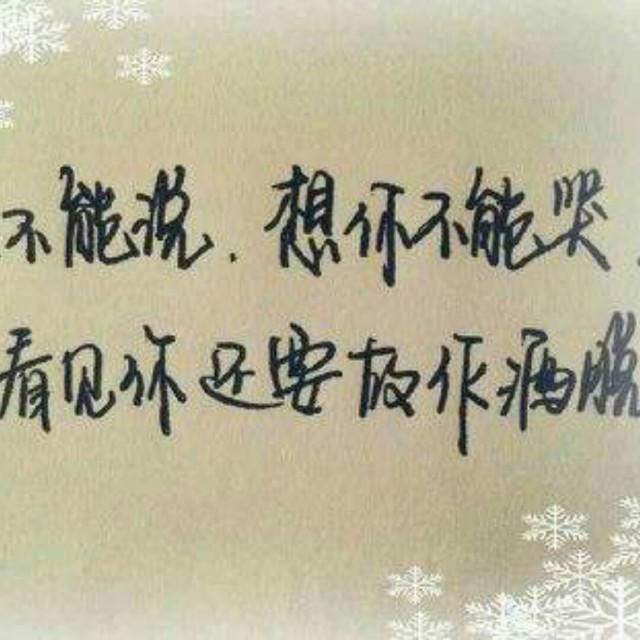 不能说.想你不能哭.
看见你还要故作洒脱